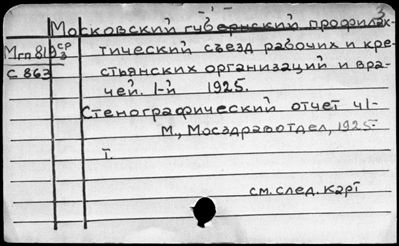 3
Московский губернский профилак-
Мгп 819 ср3 тический съезд рабочих и кре-
С 863 стьянских организаций и вра-
чей. 1-й 1925.
Стенографический отчет ч1-
М., Мосздравотдел, 1925
I.
см. след. карт